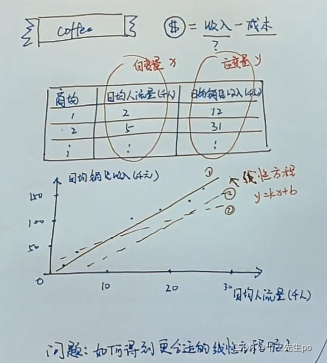 coffee
$ = 收入 - 成本
?
自变量 x
应变量 y
商场 日均人流量(千人) 日均销售收入(千元)
1 2 12
2 5 31
⋮ ⋮ ⋮
日均销售收入(千元)
150
100
50
0 10 20 30
① 线性方程
y=kx+b
②
③
日均人流量(千人)
问题:如何得到更合适的线性方程呢?